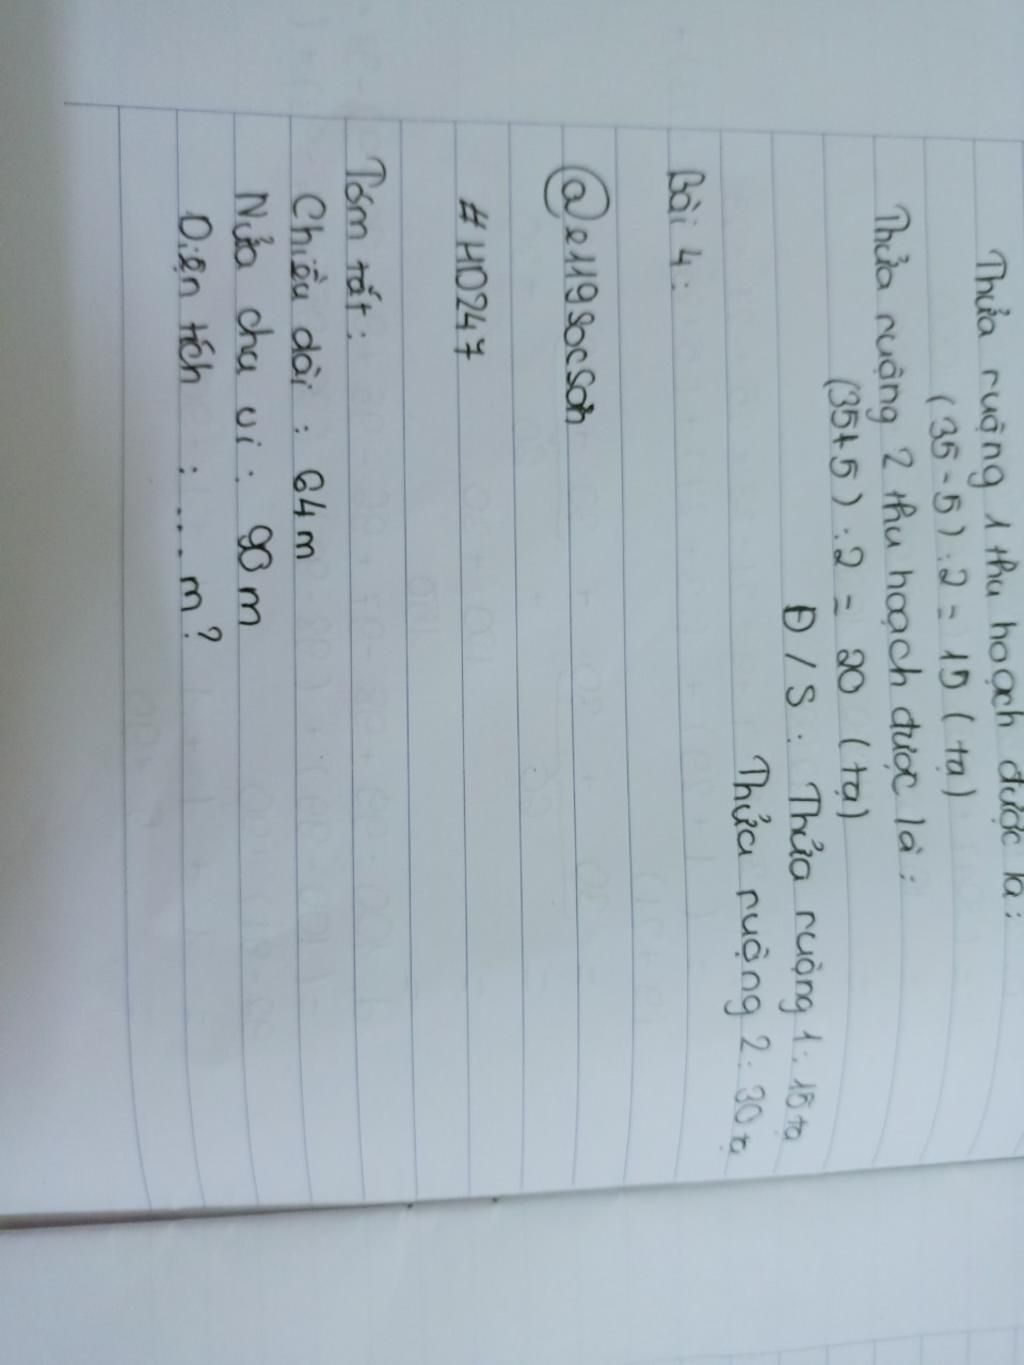 Thửa ruộng 1 thu hoạch được là:
(35 - 5) : 2 = 15 (tạ)
Thửa ruộng 2 thu hoạch được là:
(35+5) : 2 = 20 (tạ)
Đ/S: Thửa ruộng 1: 15 tạ
Thửa ruộng 2: 30 tạ
Bài 4:
@e119socson
#H0247
Tóm tắt:
Chiều dài: 64m
Nửa chu vi: 90m
Diện tích: ... m?